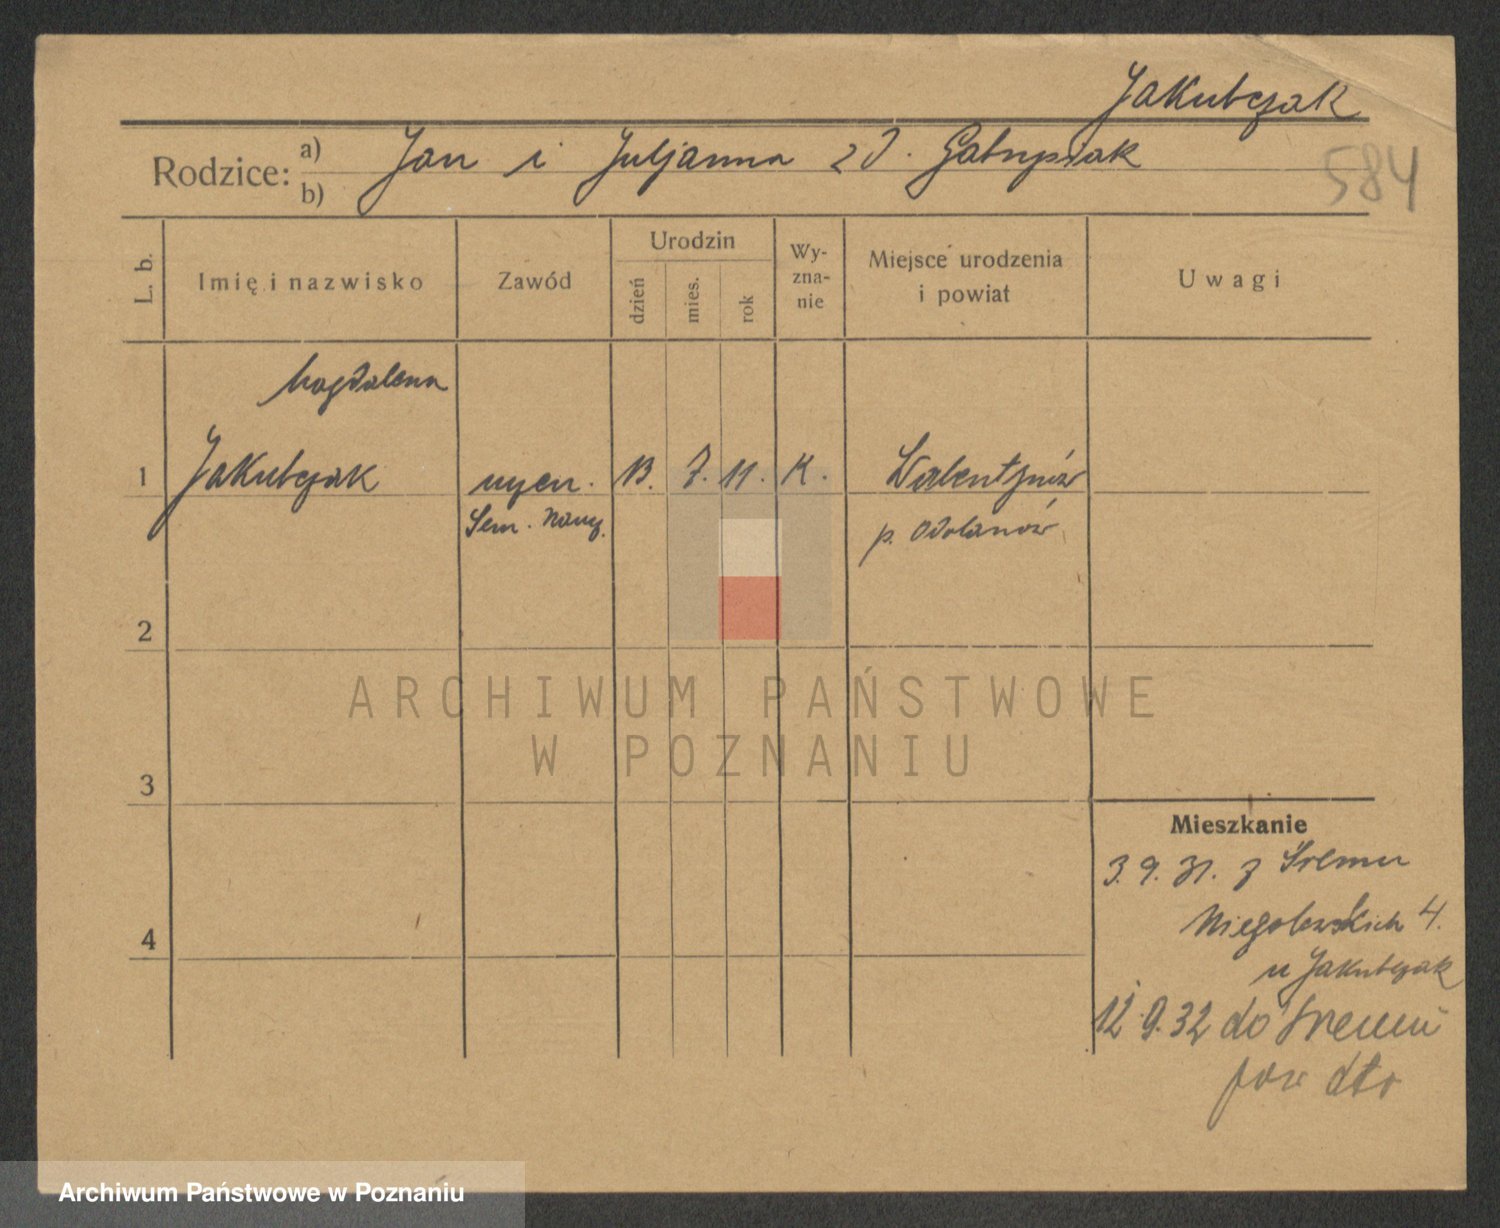 Jakubczak
Rodzice: a) b) Jan i Juljanna zd.
584
L. b.
Imię i nazwisko
Zawód
Urodzin
dzień
mies.
rok
Wy-
zna-
nie
Miejsce urodzenia
i powiat
Uwagi
Magdalena
1 Jakubczak uczen. 13. 7. 11. K.
Sem. Naucz. p. Odolanów
2
3
4
Mieszkanie
3.9.31. z Śremu
Niegolewskich 4.
u Jakubczak
12.9.32 do Śremu
pow dto
ARCHIWUM PAŃSTWOWE
W POZNANIU
Archiwum Państwowe w Poznaniu